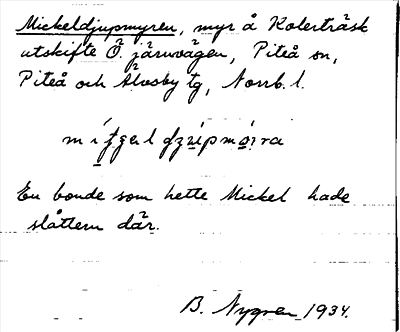 Mickeldjupmyren, myr å Kolerträsk
utskifte Ö. järnvägen, Piteå sn,
Piteå och Älvsby tg, Norrb. l.
En bonde som hette Mickel hade
slåttern där.
B. Nygren 1934.